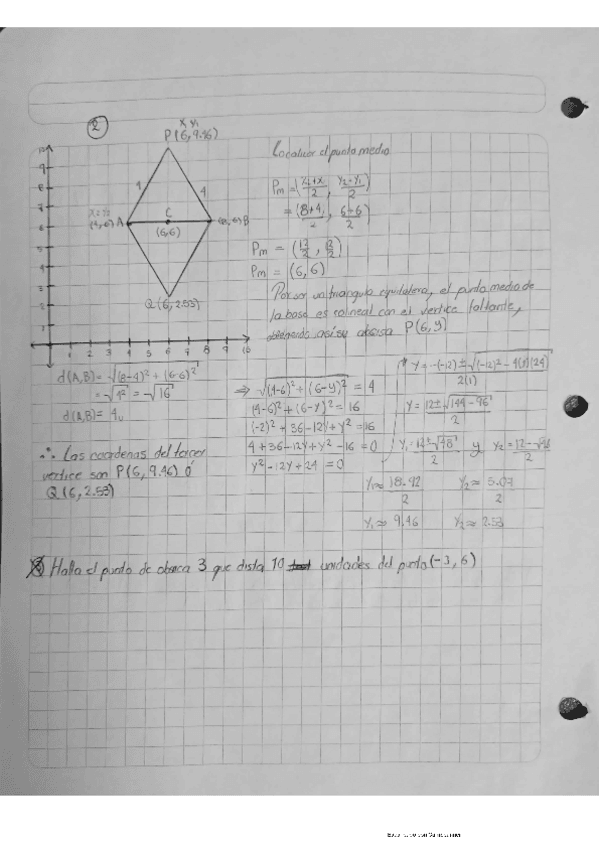 2
x₁ y₁
P(6, 9.46)
Localizar el punto medio
Pm = (x₂+x₁/2, y₂+y₁/2)
= (8+4/2, 6+6/2)
Pm = (12/2, 12/2)
Pm = (6, 6)
4 4
A C B
(4,6) (6,6) (8,6)
Q(6, 2.53)
Por ser un triangulo equilatero, el punto medio de
la base es colineal con el vertice faltante,
obteniendo asi su abcisa P(6, y)
1 2 3 4 5 6 7 8 9 10
d(A,B) = √(8-4)² + (6-6)²
= √4² = √16
d(A,B) = 4u
⇒ √(4-6)² + (6-y)² = 4
(4-6)² + (6-y)² = 16
(-2)² + 36 - 12y + y² = 16
4 + 36 - 12y + y² - 16 = 0
y² - 12y + 24 = 0
y = -(-12) ± √(-12)² - 4(1)(24) / 2(1)
y = 12 ± √144 - 96 / 2
y₁ = 12 + √48 / 2 y y₂ = 12 - √48 / 2
y₁ ≈ 18.92 / 2 y₂ ≈ 5.07 / 2
y₁ ≈ 9.46 y₂ ≈ 2.53
∴ Las coordenas del tercer
vertice son P(6, 9.46) ó
Q(6, 2.53)
Halla el punto de absica 3 que dista 10 unidades del punto (-3, 6)